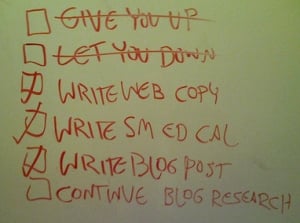 GIVE YOU UP
LET YOU DOWN
WRITE WEB COPY
WRITE SM ED CAL
WRITE BLOG POST
CONTINUE BLOG RESEARCH